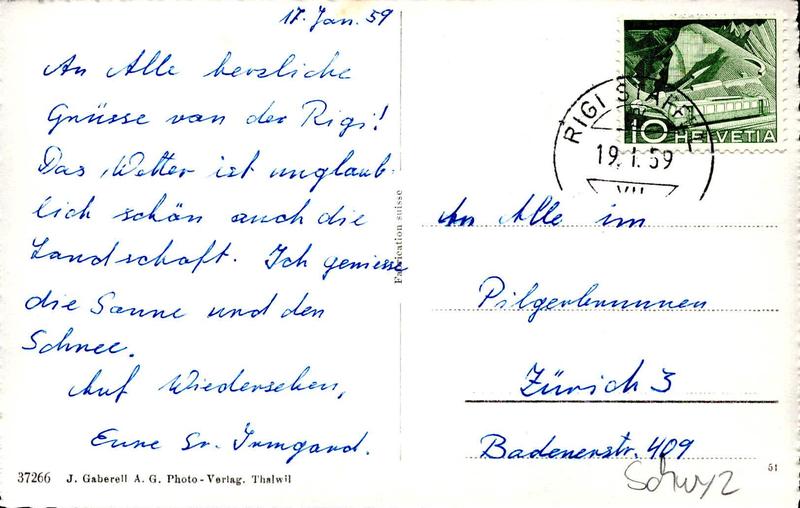 17. Jan. 59
An Alle herzliche
Grüsse von der Rigi!
Das Wetter ist unglaub-
lich schön auch die
Landschaft. Ich geniesse
die Sonne und den
Schnee.
Auf Wiedersehen,
Eure Sr. Irmgard.
37266 J. Gaberell A. G. Photo - Verlag. Thalwil
Fabrication suisse
10 HELVETIA
RIGI STAFFEL
19. I. 59
VII
An Alle im
Pilgerbrunnen
Zürich 3
Badenerstr. 409
51
Schwyz